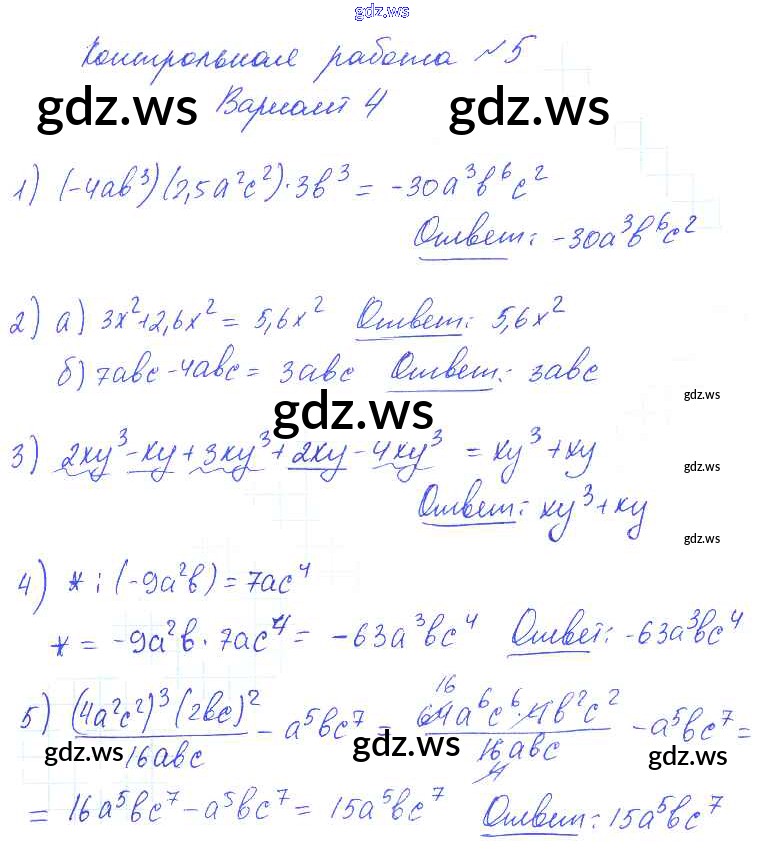 gdz.ws
Контрольная работа №5
gdz.ws Вариант 4 gdz.ws
1) (-4ab³)(2,5a²c²)·3b³ = -30a³b⁶c²
Ответ: -30a³b⁶c²
2) а) 3x²+2,6x² = 5,6x² Ответ: 5,6x²
б) 7abc-4abc = 3abc Ответ: 3abc
gdz.ws gdz.ws
3) 2xy³-xy+3xy³+2xy-4xy³ = xy³+xy
gdz.ws
Ответ: xy³+xy
gdz.ws
4) * : (-9a²b) = 7ac⁴
* = -9a²b · 7ac⁴ = -63a³bc⁴ Ответ: -63a³bc⁴
5) (4a²c²)³(2bc)²/16abc - a⁵bc⁷ = 64a⁶c⁶·4b²c²/16abc - a⁵bc⁷ =
16 4
gdz.ws gdz.ws gdz.ws
= 16a⁵bc⁷ - a⁵bc⁷ = 15a⁵bc⁷ Ответ: 15a⁵bc⁷